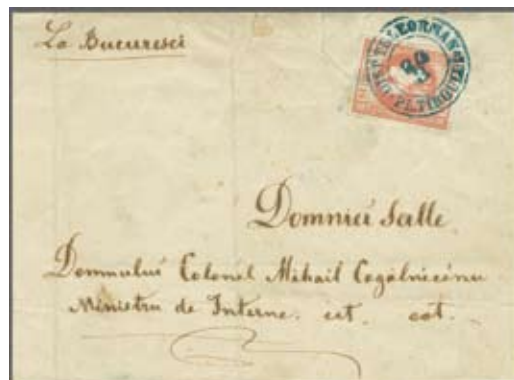 La Bucuresci
TELEORMAN
Domniei Salle
Domnului Colonel Mihail Cogalnicénu
Ministru de Interne. ect. ect.